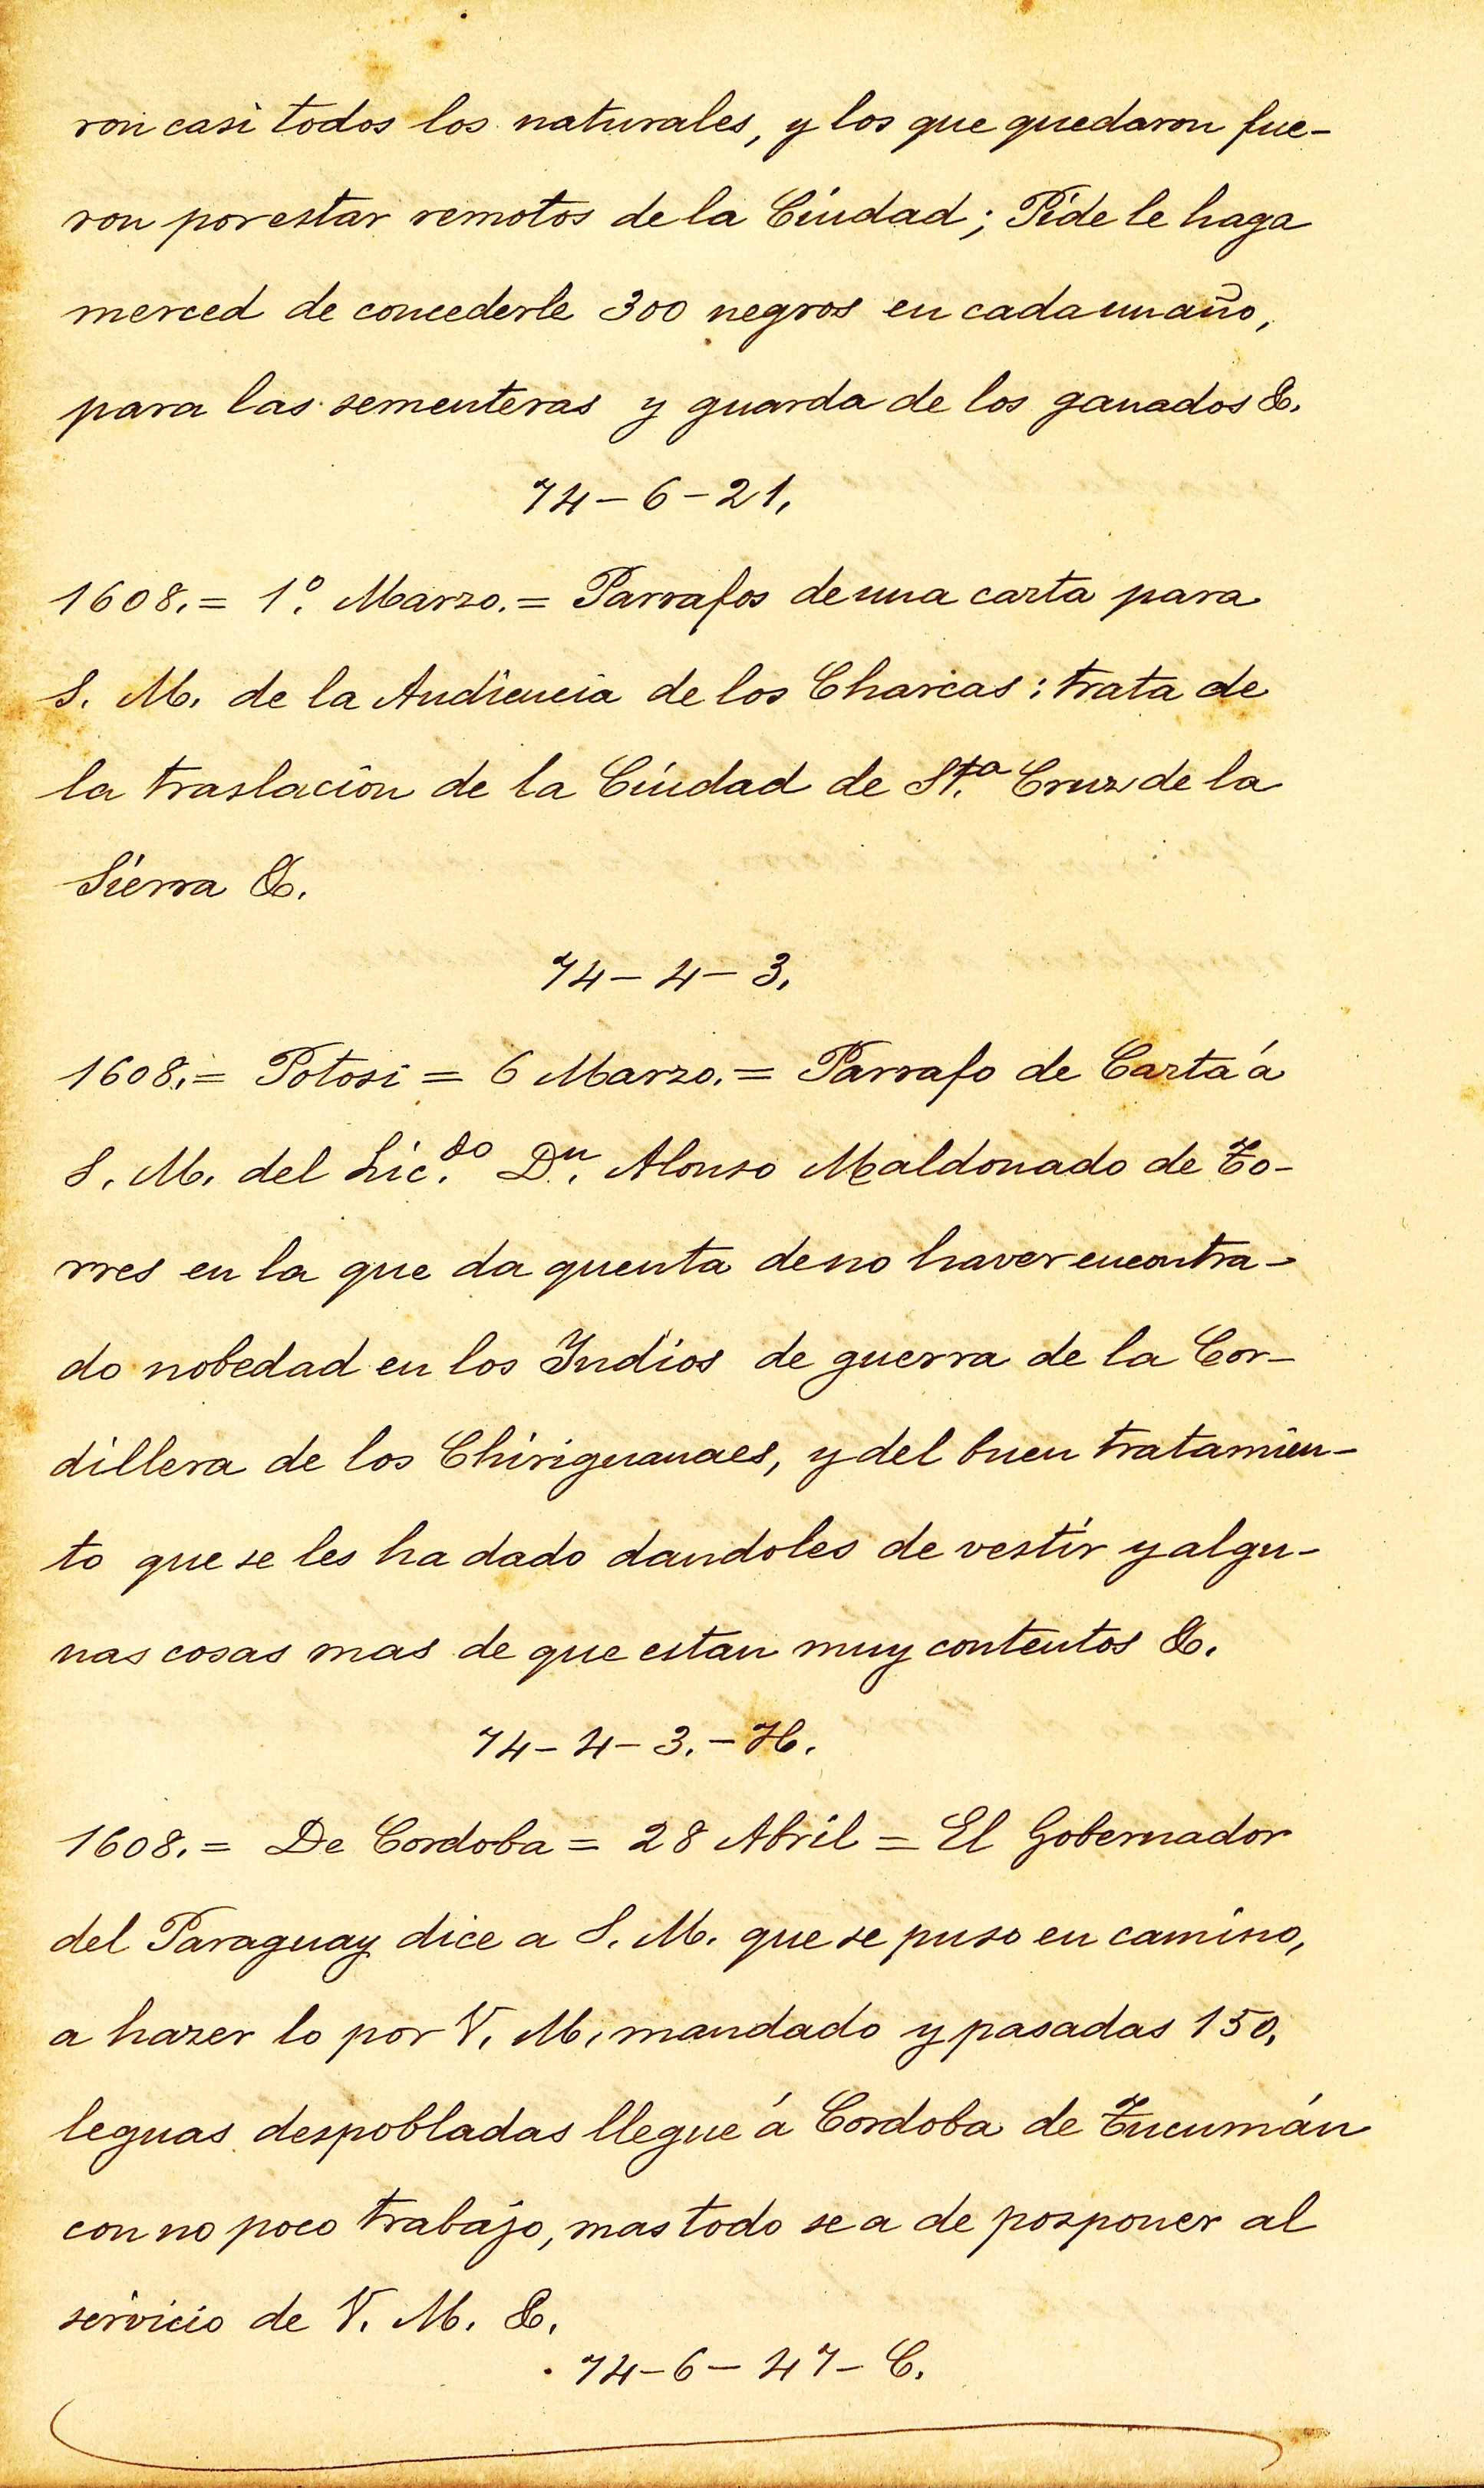 ron casi todos los naturales, y los que quedaron fue-
ron por estar remotos de la Ciudad; Pide le haga
merced de concederle 300 negros en cada un año,
para las sementeras y guarda de los ganados &.
74-6-21.
1608.= 1º. Marzo.= Parrafos de una carta para
S. M. de la Audiencia de los Charcas: trata de
la traslacion de la Ciudad de St.ª Cruz de la
Sierra &.
74-4-3.
1608.= Potosi = 6 Marzo.= Parrafo de Carta á
S. M. del Lic.do Dn. Alonso Maldonado de To-
rres en la que da quenta de no haver encontra-
do nobedad en los Indios de guerra de la Cor-
dillera de los Chiriguanaes, y del buen tratamien-
to que se les ha dado dandoles de vestir y algu-
nas cosas mas de que estan muy contentos &.
74-4-3.-H.
1608.= De Cordoba = 28 Abril = El Gobernador
del Paraguay dice a S. M. que se puso en camino,
a hazer lo por V. M. mandado y pasadas 150,
leguas despobladas llegue á Cordoba de Tucumán
con no poco trabajo, mas todo se a de posponer al
servicio de V. M. &.
74-6-47-C.